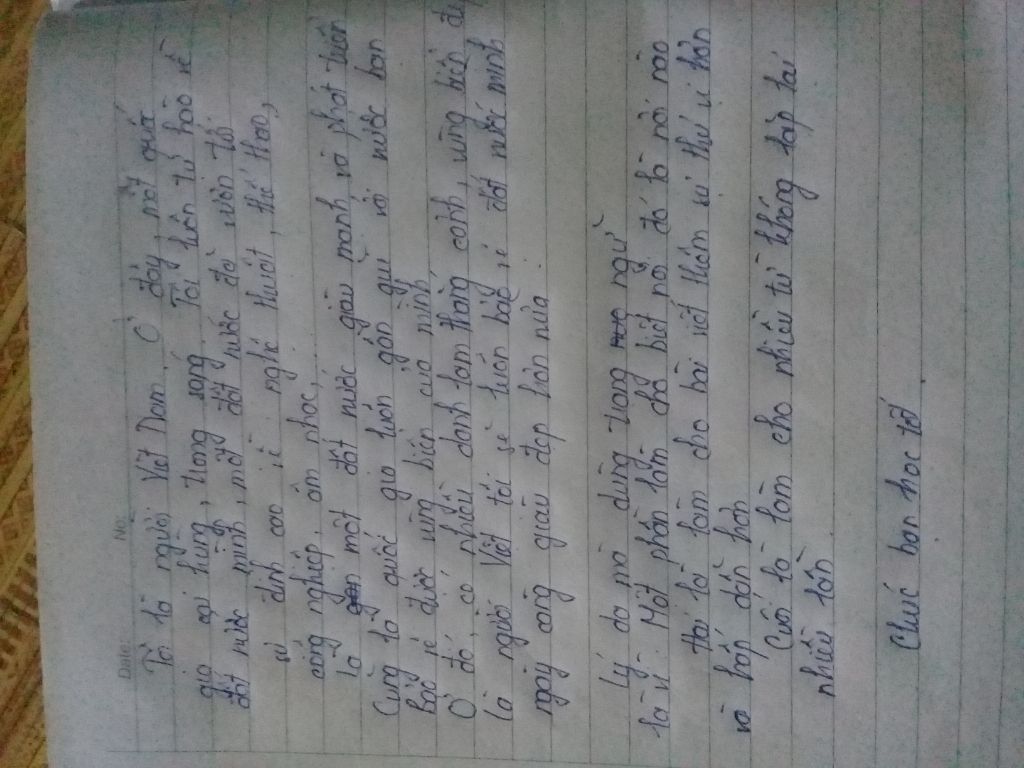 Date: No:
Tôi là người Việt Nam. Ở đây, một quố
gia oai hùng, trang sang. Tôi luôn tự hào về
đất nước mình, một đất nước đã vươn tới
về đỉnh cao về nghệ thuật, thể thao,
công nghiệp, âm nhạc,...
Là một đất nước giàu mạnh và phát triển
Cũng là quốc gia luôn gần gui với nước bạn
bảo vệ được vùng biển của mình.
Ở đó, có nhiều danh lam thắng cảnh, vùng biển đẹ
Là người Việt tôi sẽ luôn bảo vệ đất nước mình
ngày càng giàu đẹp hơn nữa.
Lý do mà dùng trang ngữ
là vì: Một phần làm cho biết nơi đó là nơi nào
Hai là làm cho bài viết thêm sự thú vị hơn
và hấp dẫn hơn
Cuối là làm cho nhiều từ không lặp lại
nhiều lần.
Chúc bạn học tố